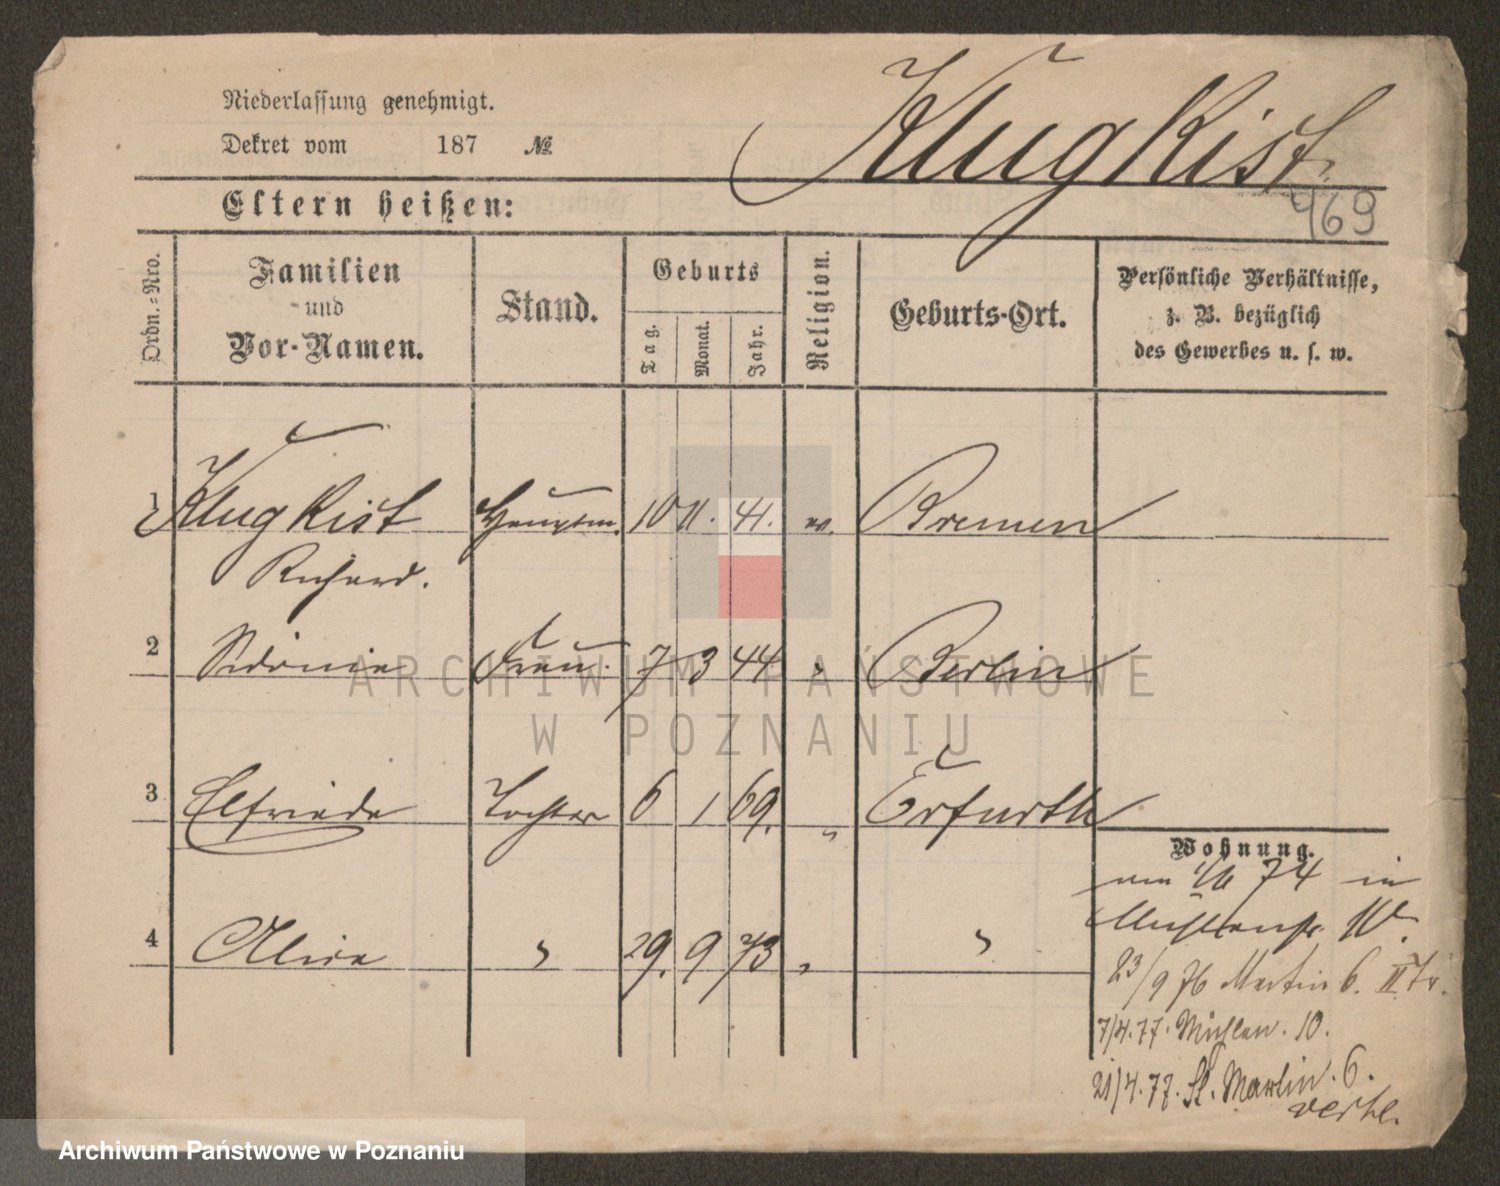 Niederlassung genehmigt.
Dekret vom 187 №
Klugkist.
469
Eltern heißen:
Ordn.-Nro.
Familien und Vor-Namen.
Stand.
Geburts
Tag.
Monat.
Jahr.
Religion.
Geburts-Ort.
Persönliche Verhältnisse,
z. B. bezüglich
des Gewerbes u. s. w.
1 Klugkist Hauptm. 10 11. 41. ev. Bremen
Richard.
2 Sidonie Frau. 7 3 44 " Berlin
3 Elfriede Tochter 6 1 69. " Erfurth
4 Alice " 29. 9 73 " "
Wohnung.
74 in
Mühlenstr. 10.
23/9 76 Martin 6. II Tr.
7/4.77. Mühlen. 10.
21/4.77. St. Martin. 6.
ARCHIWUM PAŃSTWOWE
W POZNANIU
Archiwum Państwowe w Poznaniu